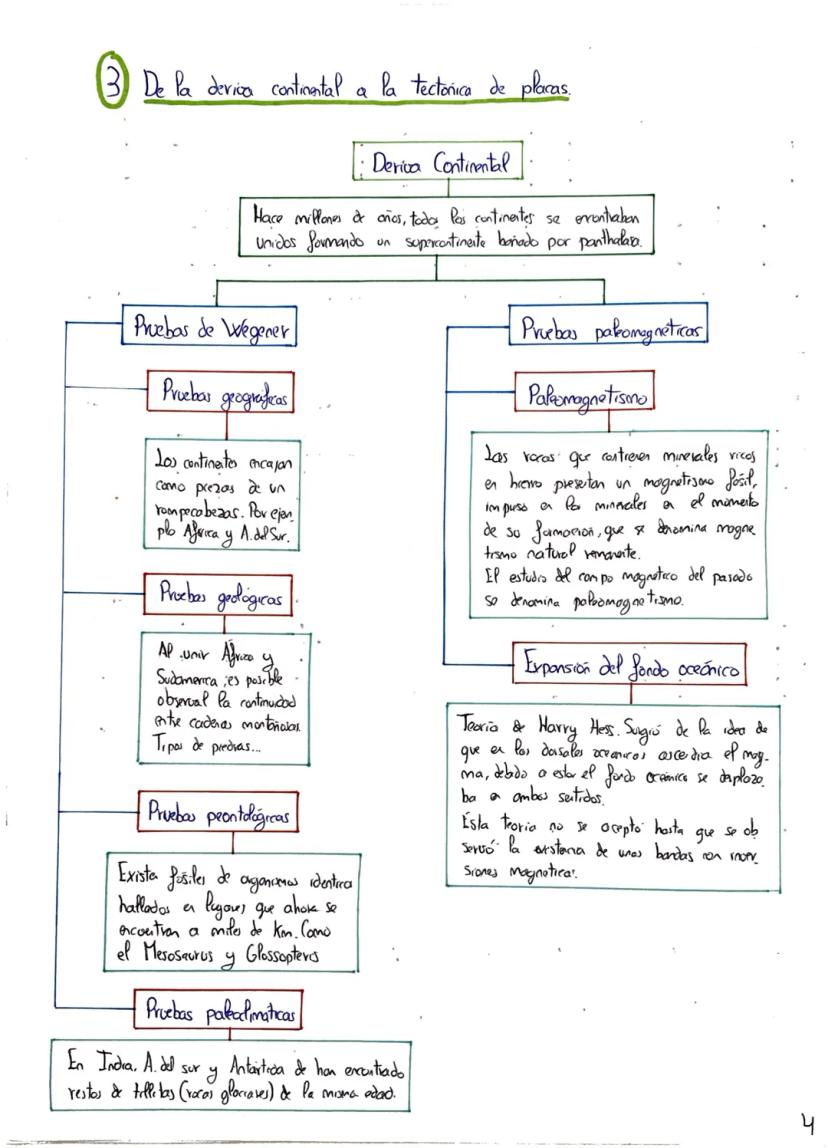 3 De la deriva continental a la tectónica de placas.
Deriva Continental
Hace millones de años, todos los continentes se encontraban
unidos formando un supercontinente bañado por panthalasa.
Pruebas de Wegener
Pruebas geográficas
Los continentes encajan
como piezas de un
rompecabezas. Por ejem
plo África y A. del Sur.
Pruebas geológicas
Al unir África y
Sudamerica, es posible
observar la continuidad
entre cadenas montañosas.
Tipos de piedras...
Pruebas peontológicas
Existen fósiles de organismos identica
hallados en lugares que ahora se
encuentran a miles de Km. Como
el Mesosaurus y Glossopteris
Pruebas paleoclimáticas
En India, A. del sur y Antártida de han encontrado
restos de tillitas (rocas glaciares) de la misma edad.
Pruebas paleomagnéticas
Paleomagnetismo
Las rocas que contienen minerales ricos
en hierro presentan un magnetismo fósil,
impuso en los minerales en el momento
de su formación, que se denomina magne
tismo natural remanente.
El estudio del campo magnético del pasado
se denomina paleomagnetismo.
Expansión del fondo oceánico
Teoría de Harry Hess. Surgió de la idea de
que en las dorsales oceánicas ascendía el mag-
ma, debido a esto el fondo oceánico se desplaza
ba en ambos sentidos.
Ésta teoría no se aceptó hasta que se ob
servó la existencia de unas bandas con inver
siones magnéticas.
4